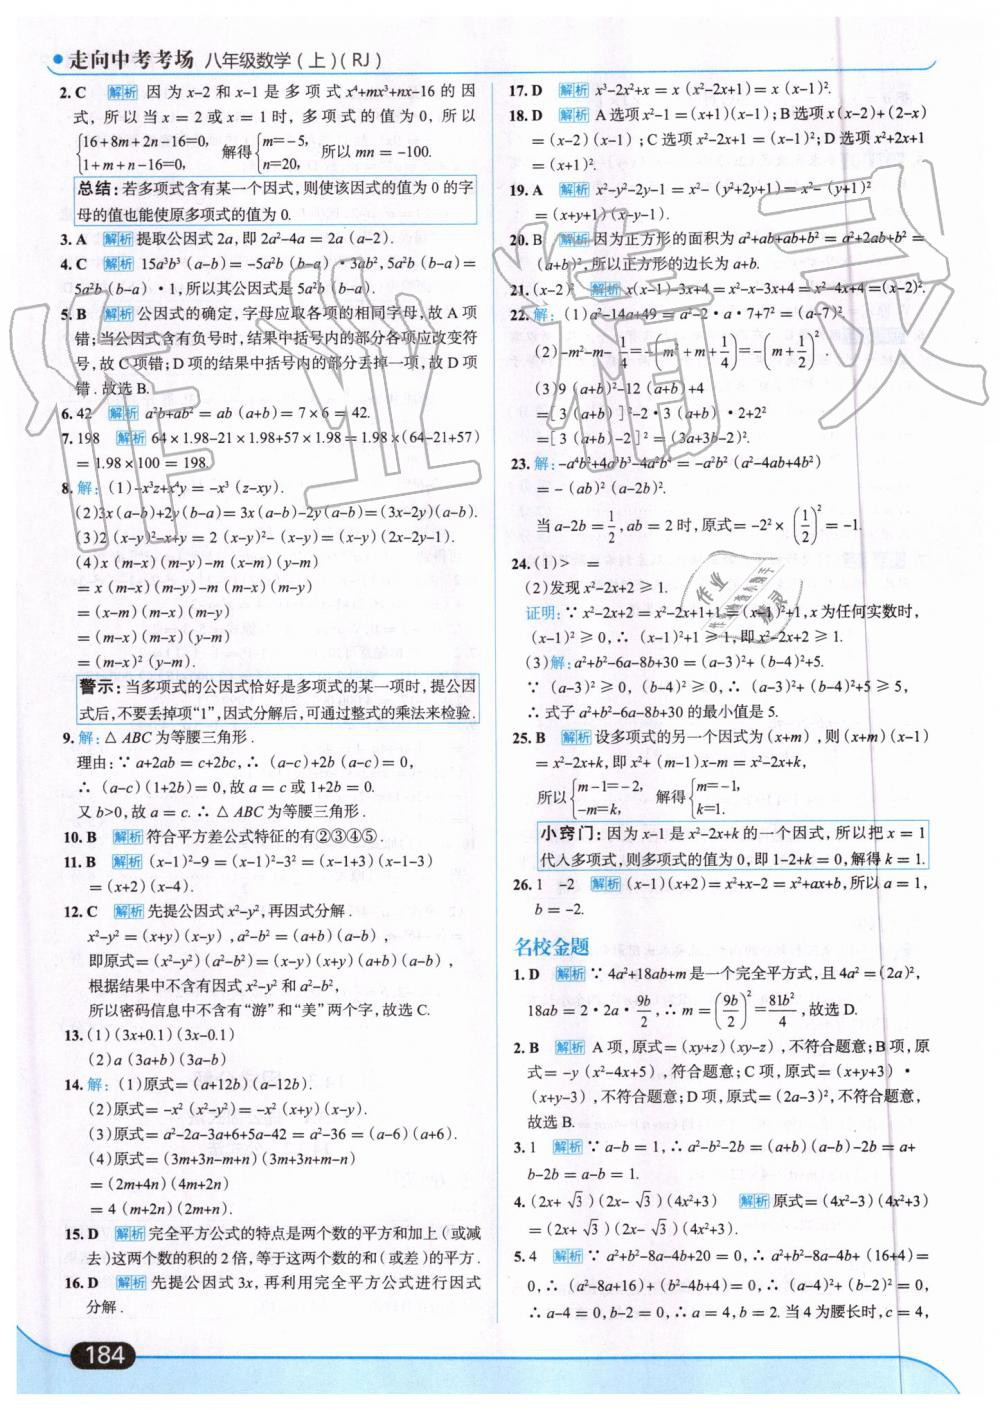 走向中考考场 八年级数学(上)(RJ)
2. C 解析 因为x-2和x-1是多项式x⁴+mx³+nx-16的因
式,所以当x=2或x=1时,多项式的值为0,所以
{16+8m+2n-16=0, 1+m+n-16=0, 解得{m=-5, n=20, 所以mn=-100.
总结:若多项式含有某一个因式,则使该因式的值为0的字
母的值也能使原多项式的值为0.
3. A 解析 提取公因式2a,即2a²-4a=2a(a-2).
4. C 解析 15a³b³(a-b)=-5a²b(b-a)·3ab²,5a²b(b-a)=
5a²b(b-a)·1,所以其公因式是5a²b(b-a).
5. B 解析 公因式的确定,字母应取各项的相同字母,故A项
错;当公因式含有负号时,结果中括号内的部分各项应改变符
号,故C项错;D项的结果中括号内的部分丢掉一项,故D项
错.故选B.
6. 42 解析 a²b+ab²=ab(a+b)=7×6=42.
7. 198 解析 64×1.98-21×1.98+57×1.98=1.98×(64-21+57)
=1.98×100=198.
8. 解:(1)-x³z+x⁴y=-x³(z-xy).
(2)3x(a-b)+2y(b-a)=3x(a-b)-2y(a-b)=(3x-2y)(a-b).
(3)2(x-y)²-x+y=2(x-y)²-(x-y)=(x-y)(2x-2y-1).
(4)x(m-x)(m-y)-m(x-m)(y-m)
=x(m-x)(m-y)-m(m-x)(m-y)
=(x-m)(m-x)(m-y)
=(m-x)(m-x)(y-m)
=(m-x)²(y-m).
警示:当多项式的公因式恰好是多项式的某一项时,提公因
式后,不要丢掉项“1”,因式分解后,可通过整式的乘法来检验.
9. 解:△ABC为等腰三角形.
理由:∵a+2ab=c+2bc,∴(a-c)+2b(a-c)=0,
∴(a-c)(1+2b)=0,故a=c或1+2b=0.
又b>0,故a=c.∴△ABC为等腰三角形.
10. B 解析 符合平方差公式特征的有②③④⑤.
11. B 解析 (x-1)²-9=(x-1)²-3²=(x-1+3)(x-1-3)
=(x+2)(x-4).
12. C 解析 先提公因式x²-y²,再因式分解.
x²-y²=(x+y)(x-y),a²-b²=(a+b)(a-b),
即原式=(x²-y²)(a²-b²)=(x-y)(x+y)(a+b)(a-b),
根据结果中不含有因式x²-y²和a²-b²,
所以密码信息中不含有“游”和“美”两个字,故选C.
13. (1)(3x+0.1)(3x-0.1)
(2)a(3a+b)(3a-b)
14. 解:(1)原式=(a+12b)(a-12b).
(2)原式=-x²(x²-y²)=-x²(x+y)(x-y).
(3)原式=a²-2a-3a+6+5a-42=a²-36=(a-6)(a+6).
(4)原式=(3m+3n-m+n)(3m+3n+m-n)
=(2m+4n)(4m+2n)
=4(m+2n)(2m+n).
15. D 解析 完全平方公式的特点是两个数的平方和加上(或减
去)这两个数的积的2倍,等于这两个数的和(或差)的平方.
16. D 解析 先提公因式3x,再利用完全平方公式进行因式
分解.
184
17. D 解析 x³-2x²+x=x(x²-2x+1)=x(x-1)².
18. D 解析 A选项x²-1=(x+1)(x-1);B选项x(x-2)+(2-x)
=(x-2)(x-1);C选项x²-2x+1=(x-1)²;D选项x²+2x+1
=(x+1)².
19. A 解析 x²-y²-2y-1=x²-(y²+2y+1)=x²-(y+1)²
=(x+y+1)(x-y-1).
20. B 解析 因为正方形的面积为a²+ab+ab+b²=a²+2ab+b²=
(a+b)²,所以正方形的边长为a+b.
21. (x-2)² 解析 x(x-1)-3x+4=x²-x-3x+4=x²-4x+4=(x-2)².
22. 解:(1)a²-14a+49=a²-2·a·7+7²=(a-7)².
(2)-m²-m-1/4=-(m²+m+1/4)=-(m+1/2)².
(3)9(a+b)²-12(a+b)+4
=[3(a+b)]²-2·3(a+b)·2+2²
=[3(a+b)-2]²=(3a+3b-2)².
23. 解:-a⁴b²+4a³b³-4a²b⁴=-a²b²(a²-4ab+4b²)
=-(ab)²(a-2b)².
当a-2b=1/2,ab=2时,原式=-2²×(1/2)²=-1.
24. (1)> =
(2)发现x²-2x+2≥1.
证明:∵x²-2x+2=x²-2x+1+1=(x-1)²+1,x为任何实数时,
(x-1)²≥0,∴(x-1)²+1≥1,即x²-2x+2≥1.
(3)解:a²+b²-6a-8b+30=(a-3)²+(b-4)²+5.
∵(a-3)²≥0,(b-4)²≥0,∴(a-3)²+(b-4)²+5≥5,
∴式子a²+b²-6a-8b+30的最小值是5.
25. B 解析 设多项式的另一个因式为(x+m),则(x+m)(x-1)
=x²-2x+k,即x²+(m-1)x-m=x²-2x+k,
所以{m-1=-2, -m=k, 解得{m=-1, k=1.
小窍门:因为x-1是x²-2x+k的一个因式,所以把x=1
代入多项式,则多项式的值为0,即1-2+k=0,解得k=1.
26. 1 -2 解析 (x-1)(x+2)=x²+x-2=x²+ax+b,所以a=1,
b=-2.
名校金题
1. D 解析 ∵4a²+18ab+m是一个完全平方式,且4a²=(2a)²,
18ab=2·2a·9b/2,∴m=(9b/2)²=81b²/4,故选D.
2. B 解析 A项,原式=(xy+z)(xy-z),不符合题意;B项,原
式=-y(x²-4x+5),符合题意;C项,原式=(x+y+3)·
(x+y-3),不符合题意;D项,原式=(2a-3)²,不符合题意,
故选B.
3. 1 解析 ∵a-b=1,∴a²-b²-2b=(a+b)(a-b)-2b=a+
b-2b=a-b=1.
4. (2x+√3)(2x-√3)(4x²+3) 解析 原式=(4x²-3)(4x²+3)
=(2x+√3)(2x-√3)(4x²+3).
5. 4 解析 ∵a²+b²-8a-4b+20=0,∴a²+b²-8a-4b+(16+4)=
0,∴(a²-8a+16)+(b²-4b+4)=0,∴(a-4)²+(b-2)²=0,
∴a-4=0,b-2=0,∴a=4,b=2.当4为腰长时,c=4,
作业精灵